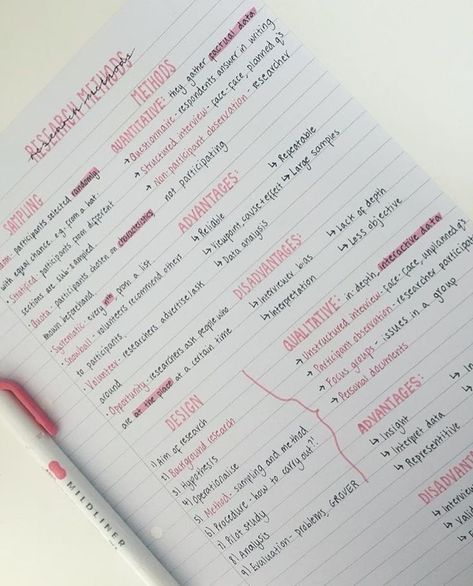 RESEARCH METHODS
research methods
SAMPLING
participants selected randomly
with equal chance. e.g. from a hat.
Stratified - participants from different
sections are sub-sampled.
Quota - participants chosen on characteristics,
known beforehand.
Systematic - every nth from a list
Snowball - volunteers recommend others
to participants
Volunteer - researchers advertise/ask
around
Opportunity - researchers ask people who
are at the place at a certain time
DESIGN
1) Aim of research
2) Background research
3) Hypothesis
4) Operationalise
5) Method - sampling and method
6) Procedure - how to carry out?!
7) Pilot study
8) Analysis
9) Evaluation - problems, GROVER
METHODS
QUANTITATIVE: they gather factual data
→ Questionnaire - respondents answer in writing
→ Structured interview - face-face, planned q's
→ Non-participant observation - researcher
not participating
ADVANTAGES:
↳ Reliable
↳ Viewpoint, cause + effect
↳ Data analysis
↳ Repeatable
↳ Large samples
DISADVANTAGES:
↳ Interviewer bias
↳ Interpretation
↳ Lack of depth
↳ Less objective
QUALITATIVE: in-depth, interactive data
→ Unstructured interview - face-face, unplanned q's
→ Participant observation - researcher participa
→ Focus groups - issues in a group
→ Personal documents
ADVANTAGES:
↳ Insight
↳ Interpret data
↳ Representitive
DISADVANTA
↳ Interview
↳ Valid
MILDLINER